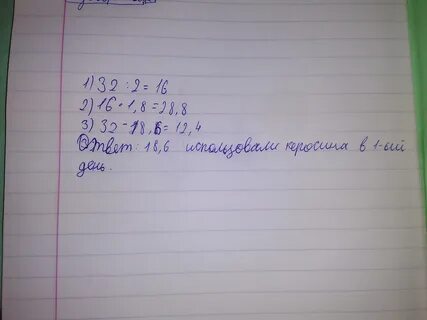 1) 32 : 2 = 16
2) 16 · 1,8 = 28,8
3) 32 - 18,6 = 12,4
Ответ: 18,6 использовали керосина в 1-ый
день.